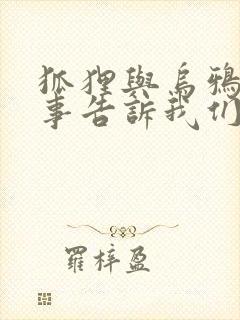 狐狸與烏鴉
事告訴我们
羅梓盈